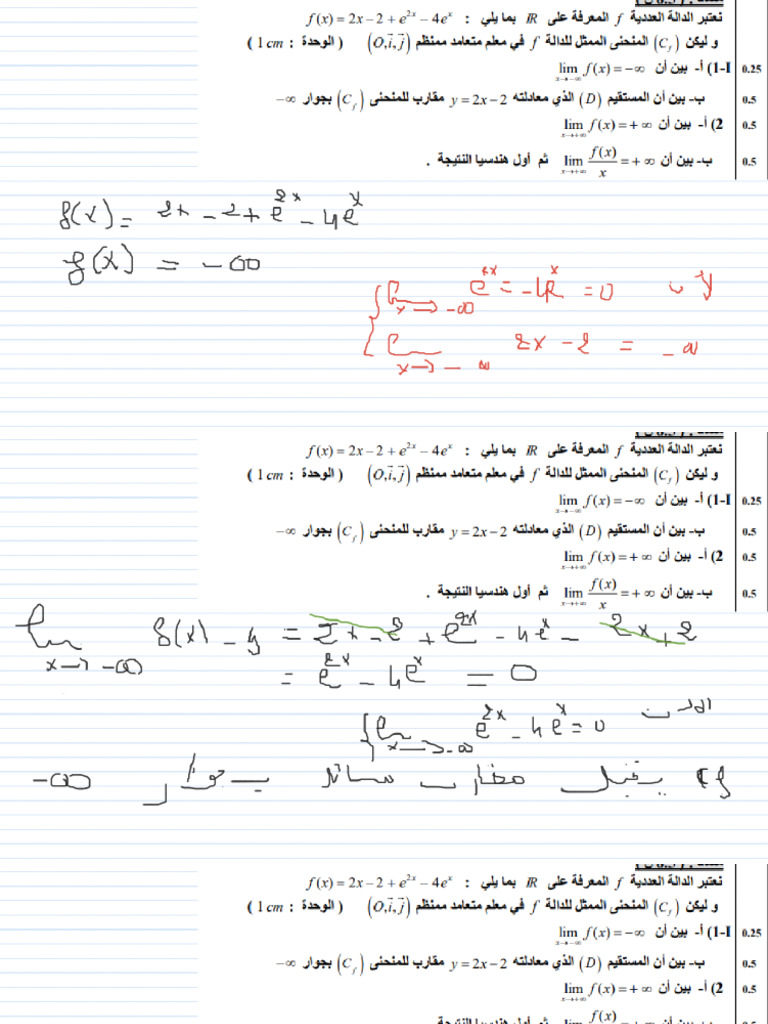 نعتبر الدالة العددية f المعرفة على IR بما يلي : f(x) = 2x − 2 + e^{2x} − 4e^x
و ليكن (C_f) المنحنى الممثل للدالة f في معلم متعامد ممنظم (O, i⃗, j⃗) ( الوحدة : 1 cm )
I-1) أ- بين أن lim_{x→−∞} f(x) = −∞ 0.25
ب- بين أن المستقيم (D) الذي معادلته y = 2x − 2 مقارب للمنحنى (C_f) بجوار −∞ 0.5
2) أ- بين أن lim_{x→+∞} f(x) = + ∞ 0.5
ب- بين أن lim_{x→+∞} f(x)/x = + ∞ ثم أول هندسيا النتيجة . 0.5
f(x) = 2x − 2 + e^{2x} − 4e^x
f(x) = −∞
lim_{x→−∞} e^{2x} = −4e^x = 0
lim_{x→−∞} 2x − 2 = −∞
نعتبر الدالة العددية f المعرفة على IR بما يلي : f(x) = 2x − 2 + e^{2x} − 4e^x
و ليكن (C_f) المنحنى الممثل للدالة f في معلم متعامد ممنظم (O, i⃗, j⃗) ( الوحدة : 1 cm )
I-1) أ- بين أن lim_{x→−∞} f(x) = −∞ 0.25
ب- بين أن المستقيم (D) الذي معادلته y = 2x − 2 مقارب للمنحنى (C_f) بجوار −∞ 0.5
2) أ- بين أن lim_{x→+∞} f(x) = + ∞ 0.5
ب- بين أن lim_{x→+∞} f(x)/x = + ∞ ثم أول هندسيا النتيجة . 0.5
lim_{x→−∞} f(x) − y = 2x − 2 + e^{2x} − 4e^x − 2x + 2
= e^{2x} − 4e^x = 0
lim_{x→−∞} e^{2x} − 4e^x = 0
Cf يقبل مقارب مائل بجوار −∞
نعتبر الدالة العددية f المعرفة على IR بما يلي : f(x) = 2x − 2 + e^{2x} − 4e^x
و ليكن (C_f) المنحنى الممثل للدالة f في معلم متعامد ممنظم (O, i⃗, j⃗) ( الوحدة : 1 cm )
I-1) أ- بين أن lim_{x→−∞} f(x) = −∞ 0.25
ب- بين أن المستقيم (D) الذي معادلته y = 2x − 2 مقارب للمنحنى (C_f) بجوار −∞ 0.5
2) أ- بين أن lim_{x→+∞} f(x) = + ∞ 0.5